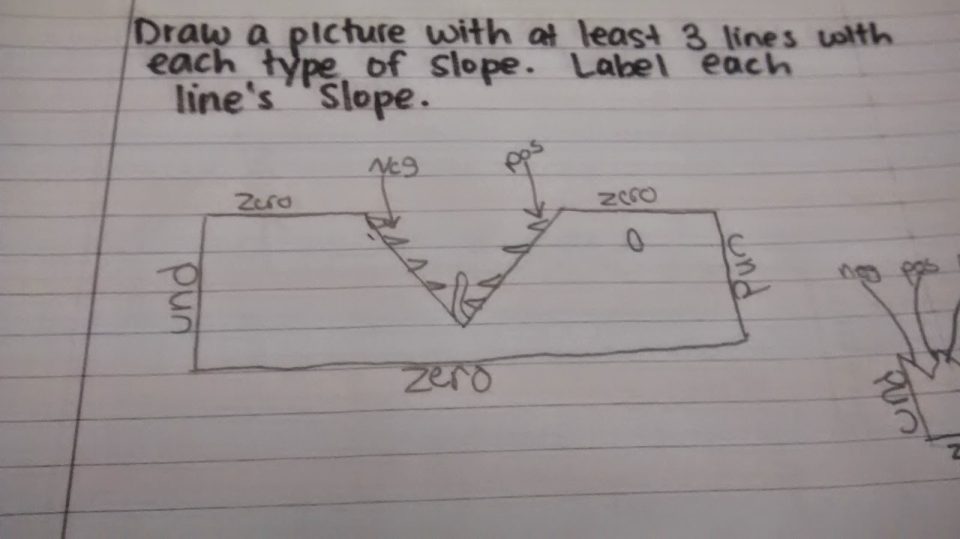 Draw a picture with at least 3 lines with
each type of slope. Label each
line's Slope.
Neg
pos
zero
zero
und
und
zero
neg pos
und
z